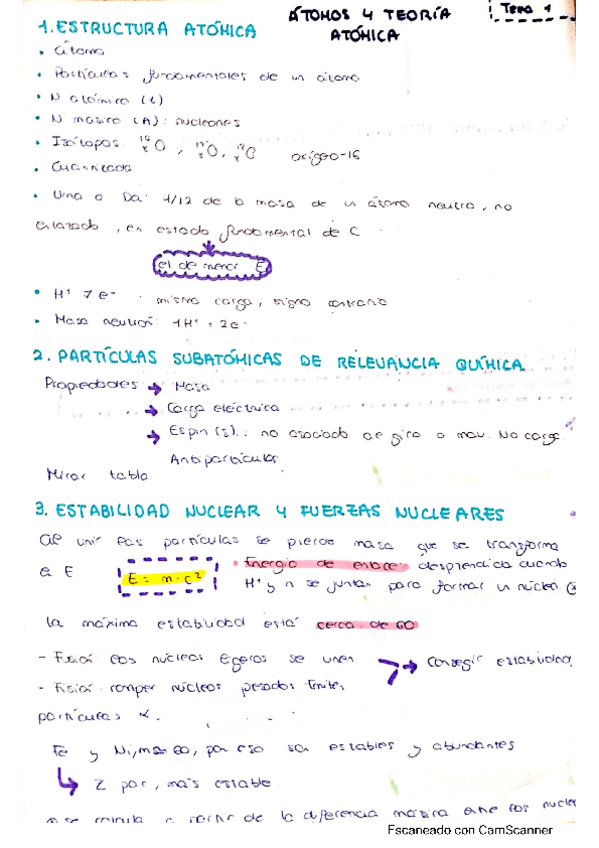 ÁTOMOS Y TEORÍA ATÓMICA
Tema 1
1. ESTRUCTURA ATÓMICA
• átomo
• Partículas fundamentales de un átomo
• N atómico (Z)
• N másico (A): nucleones
• Isótopos: ¹⁶₈O, ¹⁷₈O, ¹⁸₈O oxígeno-16
• Cuantizada
• Uma o Da: 1/12 de la masa de un átomo neutro, no
enlazado, en estado fundamental de C
el de menor E
• H⁺ 7 e⁻ misma carga, signo contrario
• Masa neutrón: 1H⁺ + 2e⁻
2. PARTÍCULAS SUBATÓMICAS DE RELEVANCIA QUÍMICA
Propiedades → Masa
→ Carga eléctrica
→ Espín (s): no asociado de giro o mov. No carga
Antipartículas
Mirar tabla
3. ESTABILIDAD NUCLEAR Y FUERZAS NUCLEARES
al unir las partículas se pierde masa que se transforma
a E E = m·c² • Energía de enlace: desprendida cuando
H⁺ y n se juntan para formar un núcleo
la máxima estabilidad está cerca de 60
- Fusión los núcleos ligeros se unen → Conseguir estabilidad
- Fisión romper núcleos pesados. Emite
partículas α.
Fe y Ni, m≈60, por eso son estables y abundantes
↳ Z par, más estable
a partir de la diferencia másica entre los
Escaneado con CamScanner